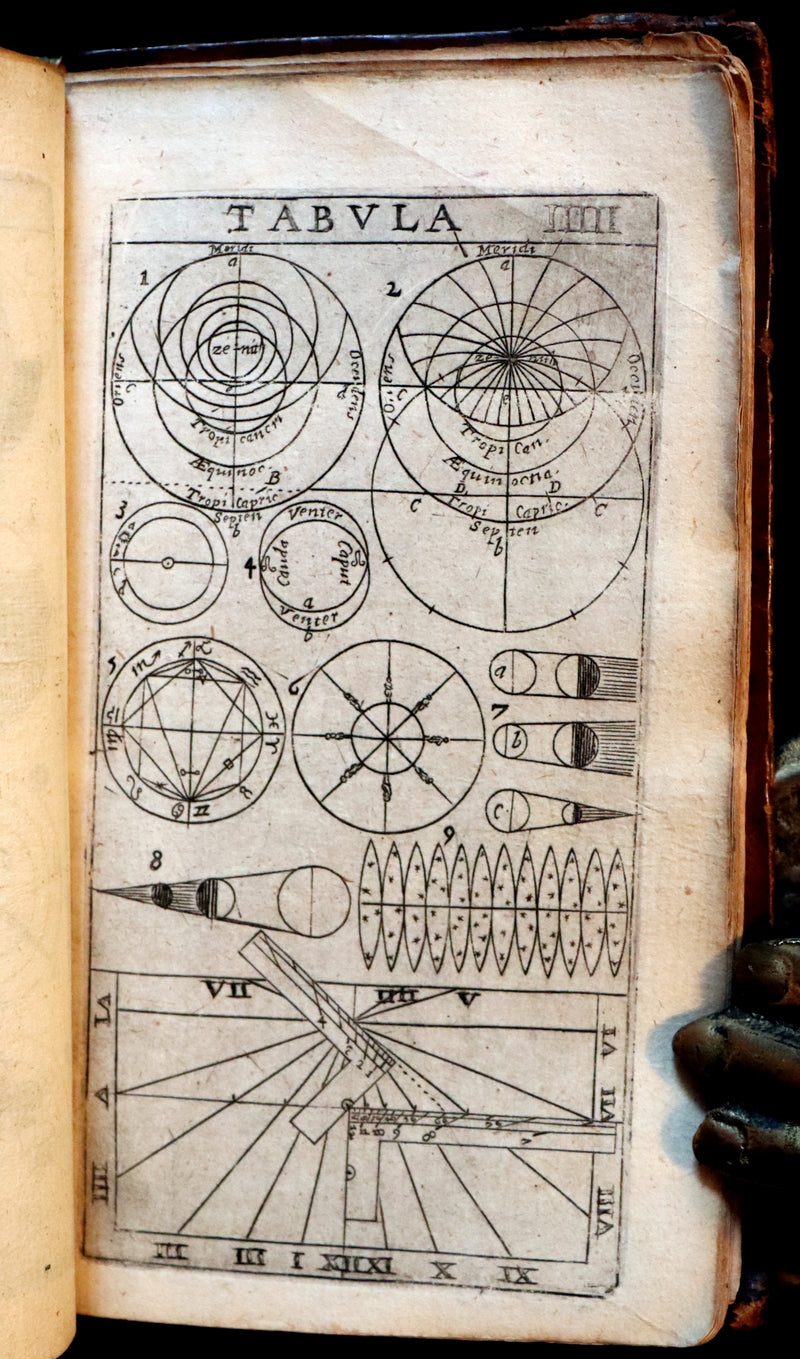 TABVLA IIIII
1
Meridi
a
ze-nith
Oriens
Occidens
Tropi cancri
Æquinoc.
B
Tropi Capric
Septen
b
2
Meridi
a
ze nith
Oriens
Occiden
e
Tropi Can.
Æquin octia.
D D
C Tropi Capric. C
Septen
b
3
4
Venter
Cauda
Caput
a
Venter
b
5
♏ ♐ ♑
♒
♎
♍
♓
♈
♌
♋ ♊
♉
6
7
a
b
c
8
9
VII IIIII V
VI
V
IIII
VI
VII
VIII
III III I XII XI X IX